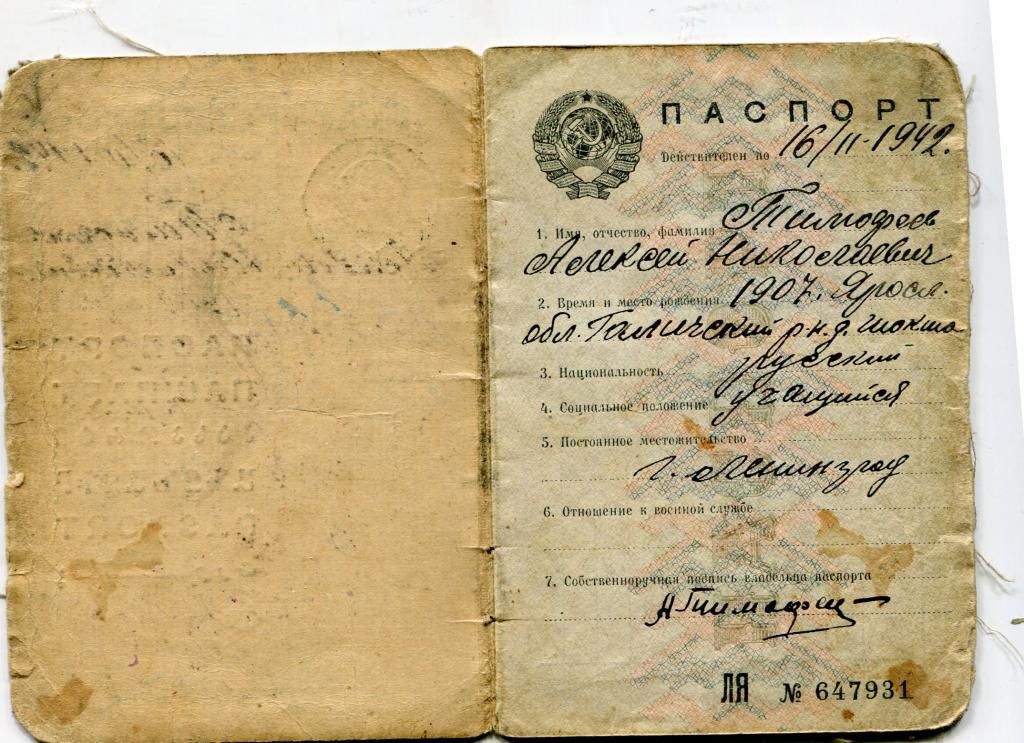 ПАСПОРТ
Действителен по 16/II-1942.
1. Имя, отчество, фамилия Тимофеев
Алексей Николаевич
2. Время и место рождения 1907. Яросл.
обл. Галичский р-н д. Шокша
3. Национальность русский
4. Социальное положение учащийся
5. Постоянное местожительство
г. Ленинград
6. Отношение к военной службе
7. Собственноручная подпись владельца паспорта
АТимофеев
ЛЯ № 647931